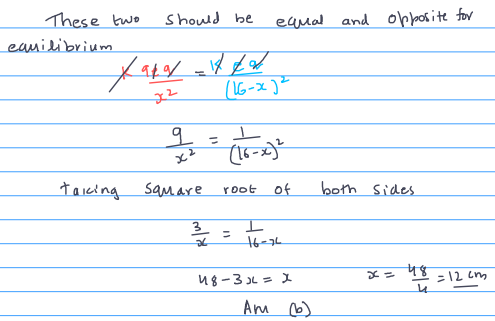 These two should be equal and opposite for
equilibrium
k 9e q / x² = k e q / (16-x)²
9/x² = 1/(16-x)²
taking square root of both sides
3/x = 1/16-x
48-3x = x    x = 48/4 = 12 cm
Ans (b)